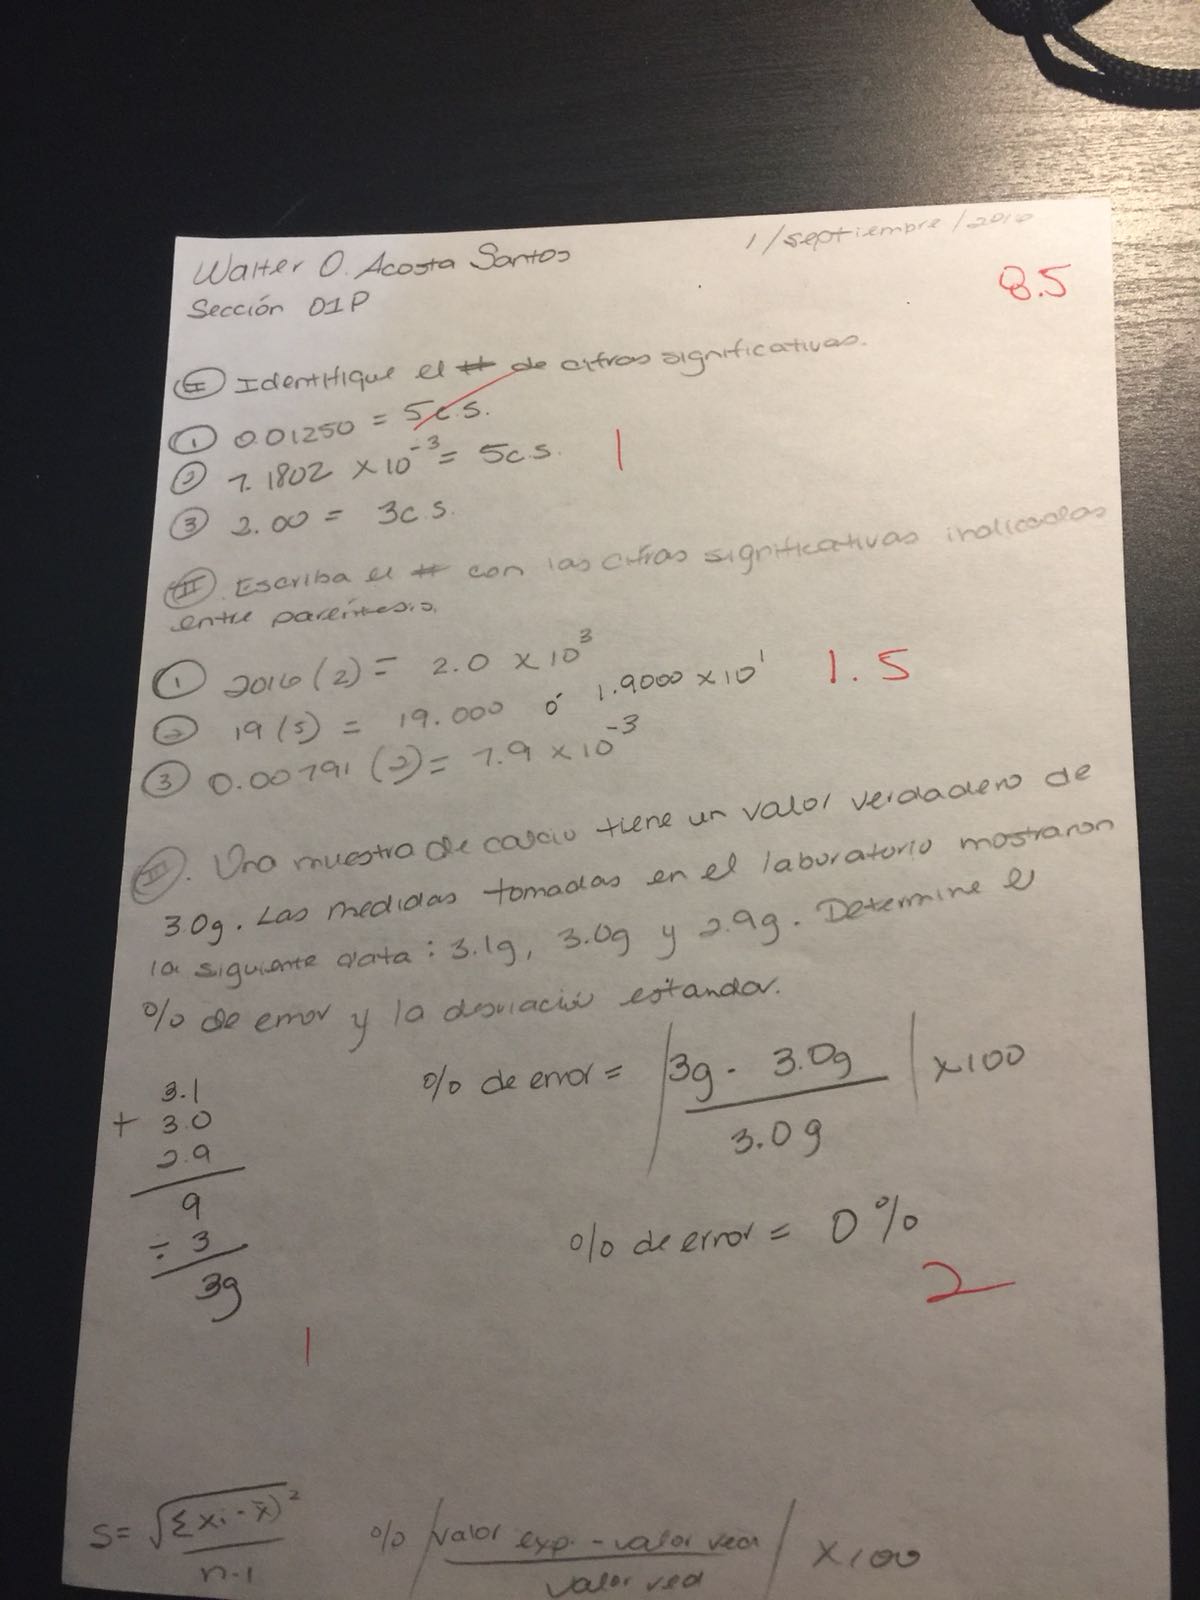 1/septiembre/2016
Walter O. Acosta Santos
Sección 01P
8.5
I Identifique el # de cifras significativas.
① 0.01250 = 5c.s.
② 7.1802 x 10⁻³ = 5c.s.
1
③ 2.00 = 3c.s.
II. Escriba el # con las cifras significativas indicadas
entre paréntesis.
① 2016 (2) = 2.0 x 10³
② 19 (5) = 19.000 ó 1.9000 x 10¹
1.5
③ 0.00791 (2) = 7.9 x 10⁻³
III. Una muestra de calcio tiene un valor verdadero de
3.0g. Las medidas tomadas en el laboratorio mostraron
la siguiente data: 3.1g, 3.0g y 2.9g. Determine el
% de error y la desviación estandar.
3.1
+ 3.0
2.9
9
÷ 3
3g
1
% de error = |3g - 3.0g / 3.0g| x100
% de error = 0%
2
S = √(Σ xi - x̄)² / n-1
% |valor exp. - valor ver / valor ver| x100